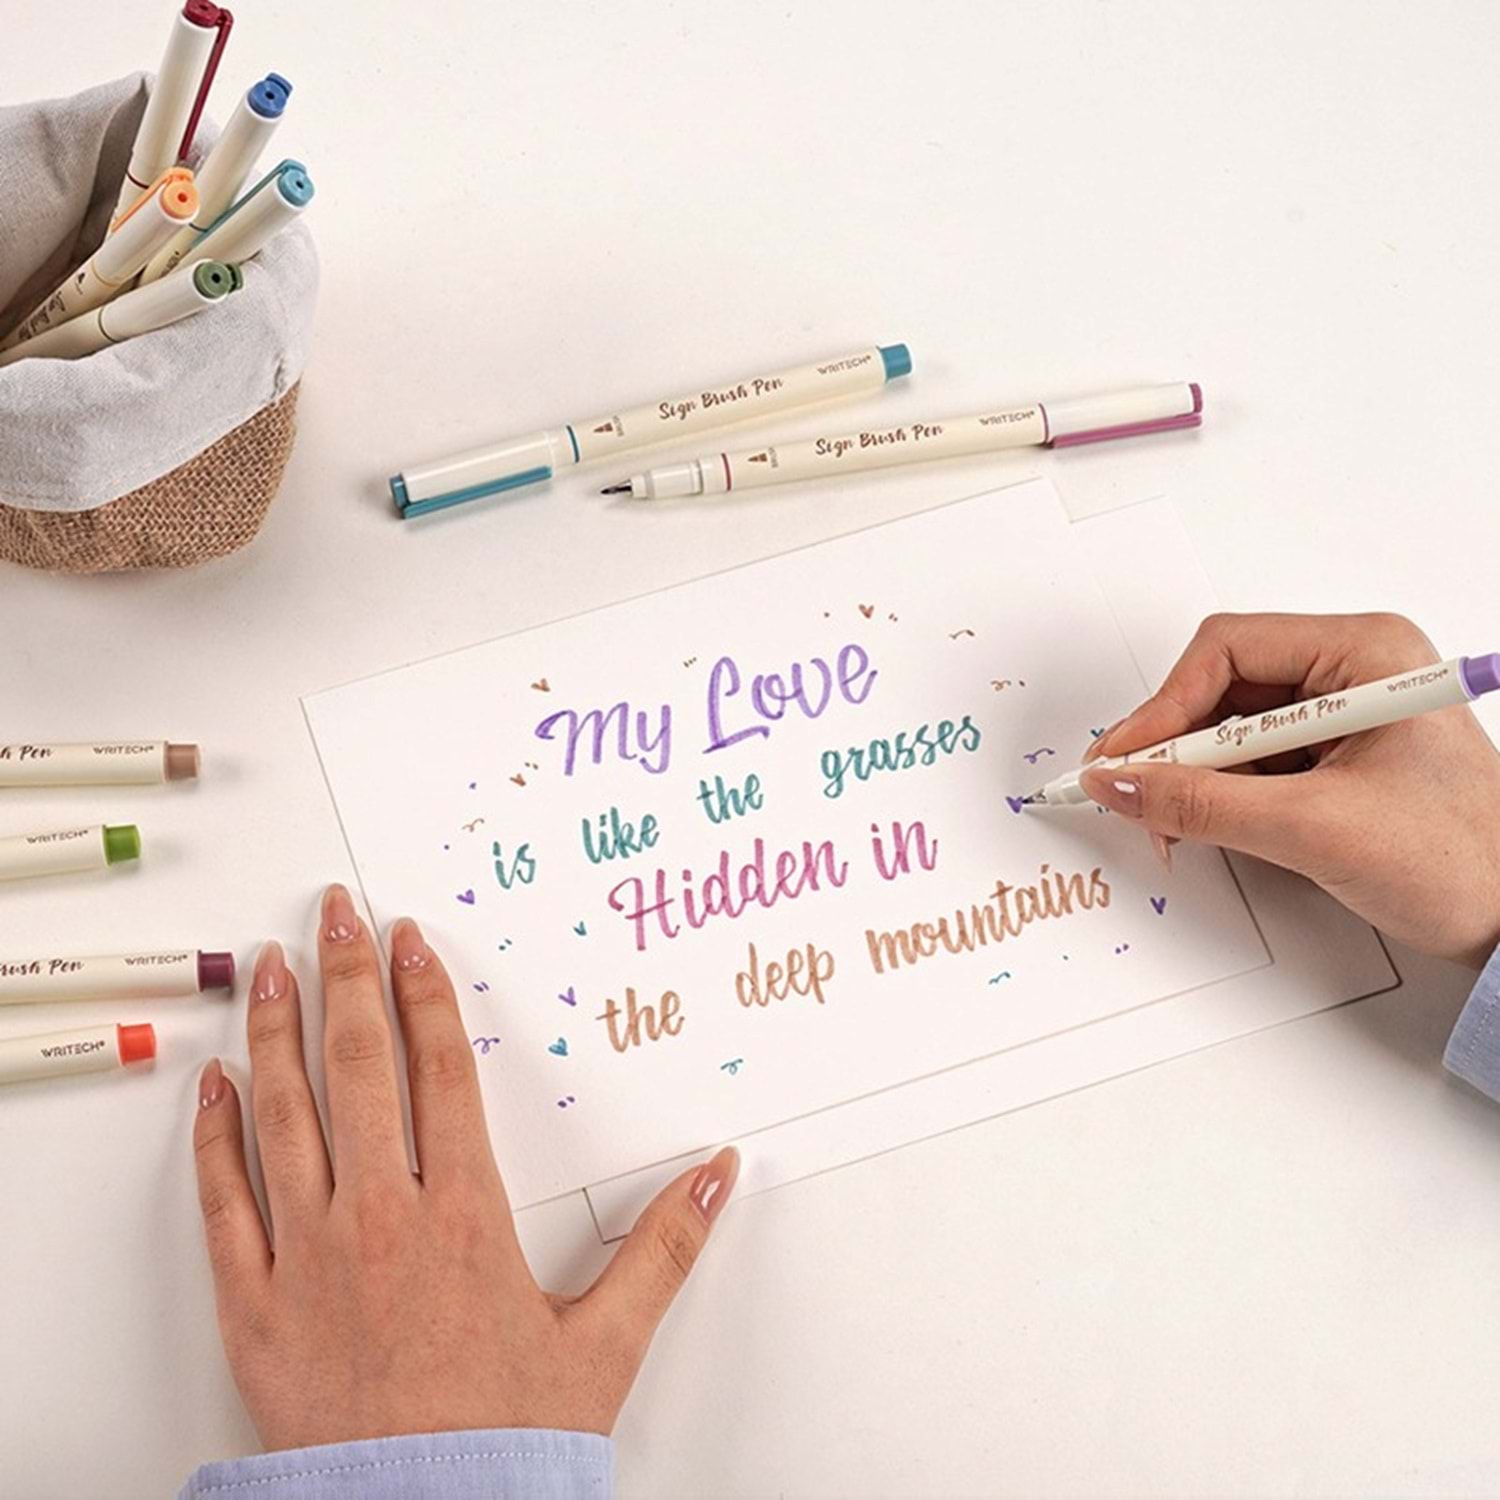 Sign Brush Pen
Sign Brush Pen WRITECH
BRUSH Sign Brush Pen WRITECH
My Love
is like the grasses
Hidden in
the deep mountains
Sign Brush Pen WRITECH
Pen WRITECH
WRITECH
Brush Pen WRITECH
WRITECH